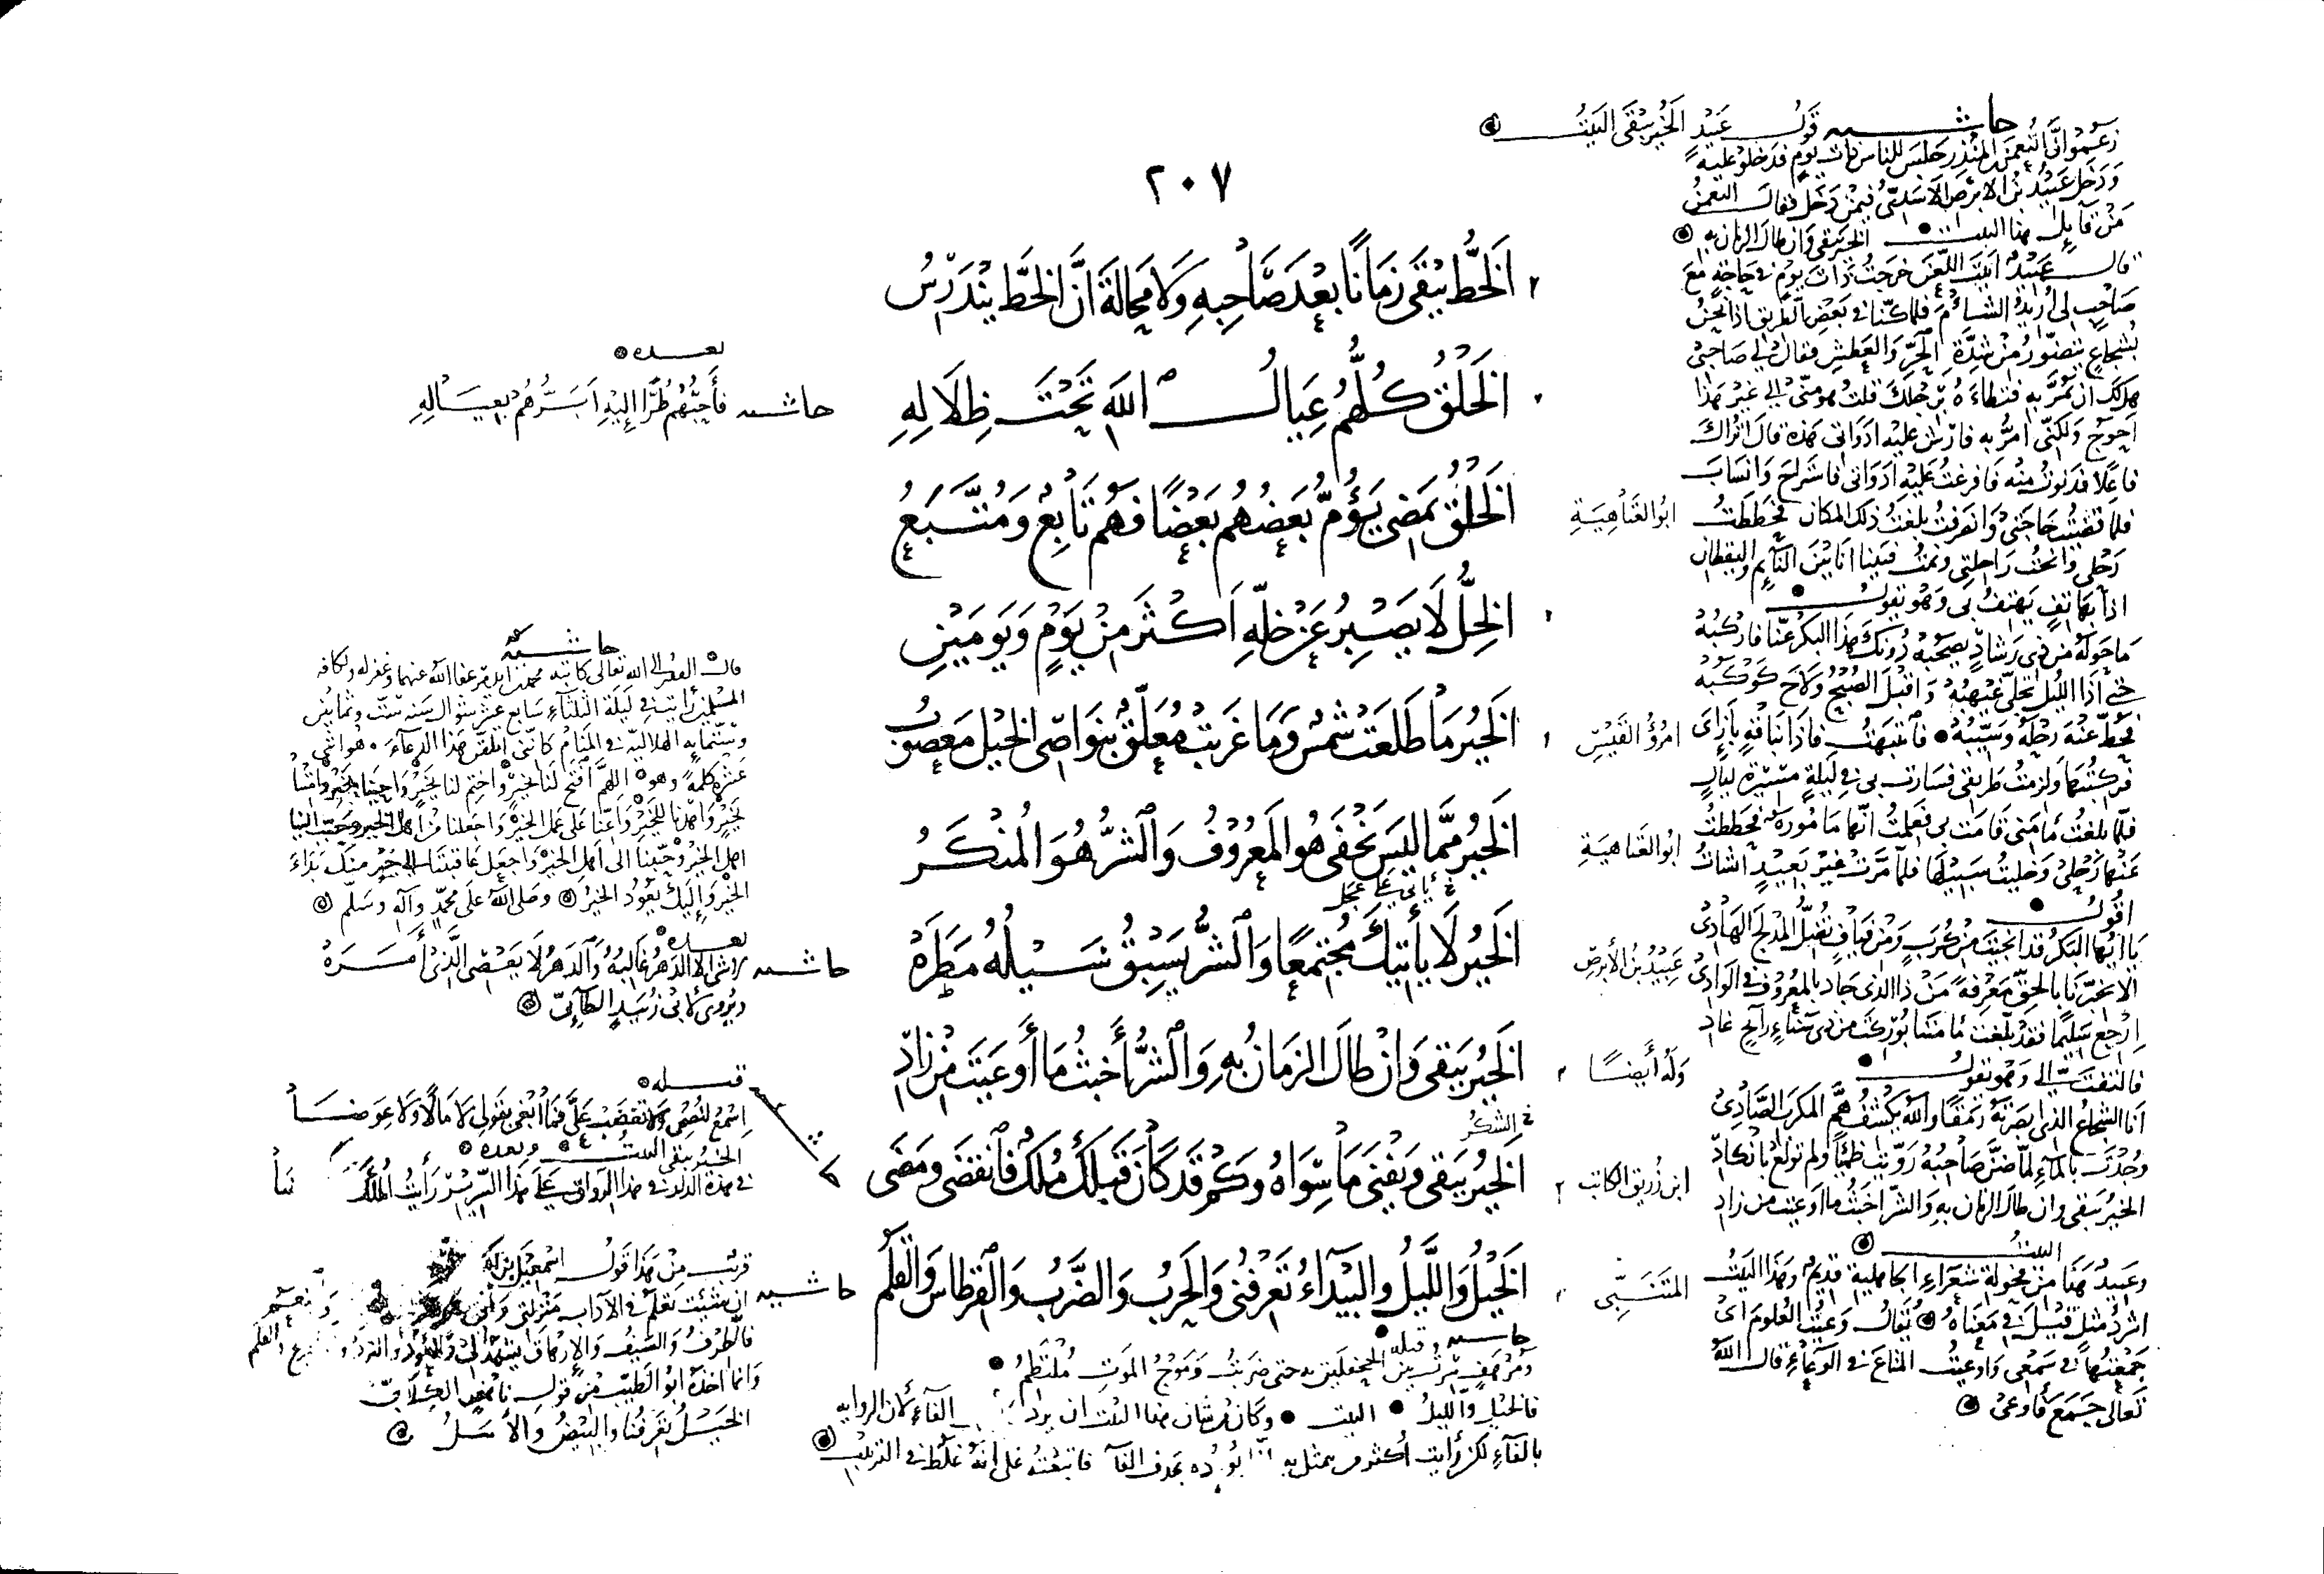 ٢٠٧
اَلخَطُّ يَبْقَى زَمَانًا بَعْدَ صَاحِبِهِ وَلَا مَحَالَةَ اَنَّ الخَطَّ يَنْدَرْسُ
اَلخَلقُ كُلُّهُمُ عِيَالُ اللهِ تَحْتَ ظِلَالِهِ
بعده
حاشيه فَأَحَبُّهُمْ طُرًّا إِلَيْهِ اَبَرُّهُمْ بِعِيَالِهِ
ابُو العَتَاهِيَةِ
اَلخَلْقُ يَمْضِى يَؤُمُّ بَعْضُهُمْ بَعْضًا فَهُمْ تَابِعٌ وَمُتَّبَعُ
اَلخِلُّ لَا يَصْبِرُ عَنْ خِلِّهِ اَكْثَرَ مِنْ يَوْمٍ وَيَوْمَيْنِ
امرُؤُ القَيْسِ
اَلخَيْرُ مَا طَلَعَتْ شَمْسٌ وَمَا غَرَبَتْ مُعَلَّقٌ بِنَوَاصِى الخَيْلِ مَعْصُوبُ
ابُو العَتَاهِيَةِ
اَلخَيْرُ مِمَّا لَيْسَ يَخْفَى هُوَ المَعْرُوْفُ وَالشَّرُّ هُوَ المُنْكَرُ
عَبِيْدُ بنُ الأَبْرَصِ
يأتى على عجل
اَلخَيْرُ لَا يَأْتِيْكَ مُجْتَمِعًا وَالشَّرُّ يَسْبِقُ سَيْلُهُ مَطَرَهْ
وَلَهُ أَيْضًا
اَلخَيْرُ يَبْقَى وَاِنْ طَالَ الزَمَانُ بِهِ وَالشَّرُّ أَخبَثُ مَا أَوْعَيْتَ مِنْ زَادِ
فى الشكر
ابن زُريق الكاتب
اَلخَيْرُ يَبْقَى وَيَفْنَى مَا سِوَاهُ وَكَمْ قَدْ كَانَ قَبْلَكَ مُلْكٌ فَانْقَضَى وَمَضَى
المُتَنَبِّى
اَلخَيْلُ وَاللَّيْلُ والبَيْدَاءُ تَعْرِفُنِى وَالحَرْبُ وَالضَّرْبُ وَالقِرْطَاسُ وَالقَلَمُ
حاشيه وقبله
وَمُرْهَفٍ سِرْتُ بين الجحفلين به حتى ضَرَبْتُ وَمَوْجُ المَوتِ مُلْتَطِمُ
فالخيل والليلُ البيت وكان من شان هذا البيت ان يرد الفآء لان الروايه
بالفآءِ لكن رأيت أكثر من يتمثل به يُورده بحذف الفآ فاتبعتُه على انه غلط فى الترتيب
حاشيه قَوْلُ عَبِيْدٍ الخَيْرُ يَبْقَى البَيْتُ
زَعَمُوا انَّ النُعمنَ بن المُنْذِر جَلَسَ للناس ذات يَوْمٍ فدخلوا عليه
وَدَخَلَ عَبيدُ بنُ الابرَصِ الاسَدِىُّ فيمَنْ دَخَلَ فقال النعمنُ
مَنْ قايِلُ هذا البيت الخير يَبقى وَان طال الزمان به
قال عَبِيْدٌ أَبَيْتَ اللَّعْنَ خرَجْتُ ذات يومٍ فى حَاجةٍ مَعَ
صَاحِبٍ لى أُرِيْدُ الشَاْمَ فلما كنّا فى بَعْضِ الطريق اذا نَحْنُ
بشُجَاعٍ يتضوّرُ مِنْ شِدَّةِ الحَرِّ وَالعَطَشِ فقال لى صَاحبى
هل لَكَ ان تمرّ به فتَطاءَهُ بِرِجْلِكَ قلتُ هو منّى الى غَيْرِ هَذا
احوَجُ وَلَكِنّى امرّ به فارُشُّ عليْه ادَاواتى هذه قال اتُراكَ
فاعِلًا فدَنوتُ منه فافرغتُ عَليهِ ادَاواتى فاستراحَ وَانسَابَ
فلما قضيْتُ حَاجَتى وَانصَرفتُ بلغتُ ذلك المكان فحَططتُ
رَحْلى وانختُ رَاحِلتِى ونمتُ فبَينا انا بَيْنَ النَّائِمِ واليقظانِ
اذا بهَاتِفٍ يَهتِفُ بى وَهُوَ يَقولُ
مَا حَوْلَهُ مِن ذى رَشادٍ يَصحَبُهْ دُوْنَكَ هَذا البَكر عنّا فارْكَبُهْ
حتى اذا اللَّيْل تجلّى غَيْهَبُهْ وَاقبَلَ الصُبْحُ ولاحَ كَوْكَبُهْ
فحُطَّ عَنْهُ رَحْلَهُ وَسَيِّبُهْ فانتبَهْتُ فاذا بنَاقةٍ بازاىَ
فركبتُها ولزمتُ طريقى فسَارت بى فى لَيلةٍ مسِيْرة ليالٍ
فلما بلغتُ مأمَنى قامَت بى فعَلِمتُ انّها مَامُورَة فحَططتُ
عَنها رَحْلى وَخليتُ سَبيْلَها فلمّا مرّت غيْرَ بَعِيْدٍ انشأتُ
اقولُ
يا ايُها البَكرُ قد انجيتَ مِنْ كُرَبٍ وَمِن فيَافٍ تُضِلُّ المُدْلِجَ الهَادِى
الا تُخبِّرنا بالحقِّ مَعْرِفةً مَن ذا الذى جَاد بالمَعْرُوفِ فى الوَادِى
اِرْجع سَلِيْمًا فقد بَلَّغتَ مَامَننا بُوْركتَ من ذى سَنَامٍ رَائحٍ غادِ
فالتفتَ الىّ وَهُوَ يَقُولُ
اَنا الشجَاعُ الذى ابصَرْتهُ رَمِضًا واللهُ يَكشفُ هَمَّ المكربِ الصَّادِى
وجُدْتَ بالمَآءِ لمّا ضنَّ صَاحِبُهُ رَوّيتَ ظمئًا ولم تولَع بانْكادِ
الخيْرُ يَبقى وان طال الزمان به وَالشّرّ اخبَثُ ما اوعَيْتَ من زادِ
البيتُ
وعَبيدٌ هَذا مِن فحُولَةِ شُعَرَاءِ الجاهلية قديمٌ وهَذا البَيْتُ
اشردُ مَثَلٍ قيل فى مَعْنَاهُ يُقالُ وَعيتُ العُلومَ اى
جَمَعتُها فى سَمْعِى وَاوعيتُ المتاعَ فى الوعَاءِ قال اللهُ
تعالى جَمَعَ فَأَوْعَى
حاشيه
قال الفقير الى الله تعالى كاتبه محمد بن ايدمر عفا الله عنهما وغفر له ولكافه
المُسْلِمين رَأيت فى لَيلَة الثُلثآءِ سَابع عشر شوال سَنه سِتّ وثمانين
وستمايه الهلاليّه فى المَنام كانّنى اُلقّن هَذا الدعآءَ هو اثنى
عَشرَ كلمةً وهو اللهمّ افتَح لَنا بخيرٍ واختِم لنا بخيرٍ وَاحينا بخيرٍ وامتنا
بخيرٍ وَاهْدِنا للخيْرِ وَاعِنّا على عَمَل الخيْر وَاجعَلنا من اهل الخير وحَبّب الينا
اهل الخيرِ وَحبِّبنا الى اهلِ الخيرِ وَاجعَل عَاقبَتنا الى خيْرٍ مِنْكَ بَدَاءَ
الخيْرُ وَاليْكَ يَعُوْدُ الخيرُ وصَلى الله عَلى محمّدٍ وآله وسَلّم
بعده
حاشيه الدَهْرُ غالِبهُ وَالدَهْرُ لَا يَعْصِى الَّذِى أَمَرَهْ
ويُروى لابى زُبَيدٍ الطآئِىّ
قبله
اِسْمَعْ لنُصْحِى وَلَا تَغْضَبْ عَلَىَّ فمَا أَبْغِى بقَولى لا مَالًا وَلا عِوَضَا
الخيرُ يَبقى البيتُ وبعده
فى هذه الدَار فى هذا الرواق عَلى هَذا السّرِيْرِ رَأَيتُ المُلْكَ
حاشيه قريْب مِنْ هَذا قولُ اسْمعيلَ بن
ان شئت تعْلمُ فى الآداب مَنْزِلتى
فالطّرفُ وَالسَّيفُ وَالإرهَاق يَشهَد لى وَالعُوْدُ وَالنردُ والقَلمُ
وَانما اخذهُ ابُو الطيّب مِنْ قولِ ناهضٍ الكِلابىّ
الخَيْلُ تَعرِفُنا والبِيْضُ والأَسَلُ